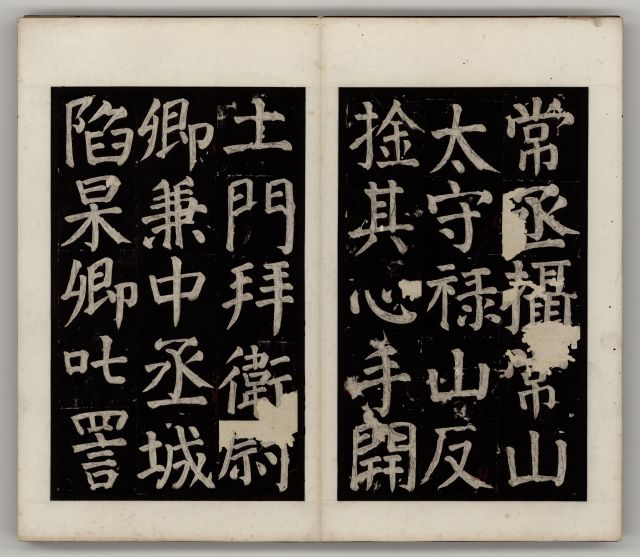 常丞攝常山
太守祿山反
捦其心手開
土門拜衛尉
卿兼中丞城
陷杲卿叱詈